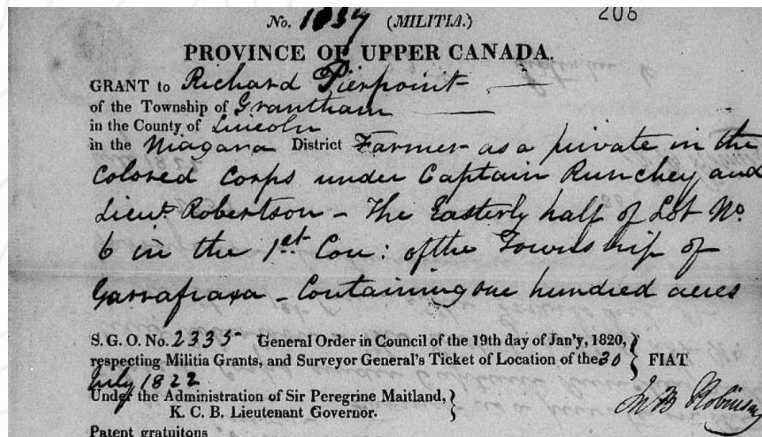 No. 1037 (MILITIA.) 206
PROVINCE OF UPPER CANADA.
GRANT to Richard Pierpoint
of the Township of Grantham
in the County of Lincoln
in the Niagara District Farmer as a private in the
Colored Corps under Captain Runchey and
Lieut. Robertson - The Easterly half of Lot No.
6 in the 1st Con: of the Township of
Garrafraxa - Containing one hundred acres
S. G. O. No. 2335 General Order in Council of the 19th day of Jan'y, 1820,
respecting Militia Grants, and Surveyor General's Ticket of Location of the 30 } FIAT
July 1822
Under the Administration of Sir Peregrine Maitland, }
K. C. B. Lieutenant Governor. Jno B Robinson
Patent gratuitous